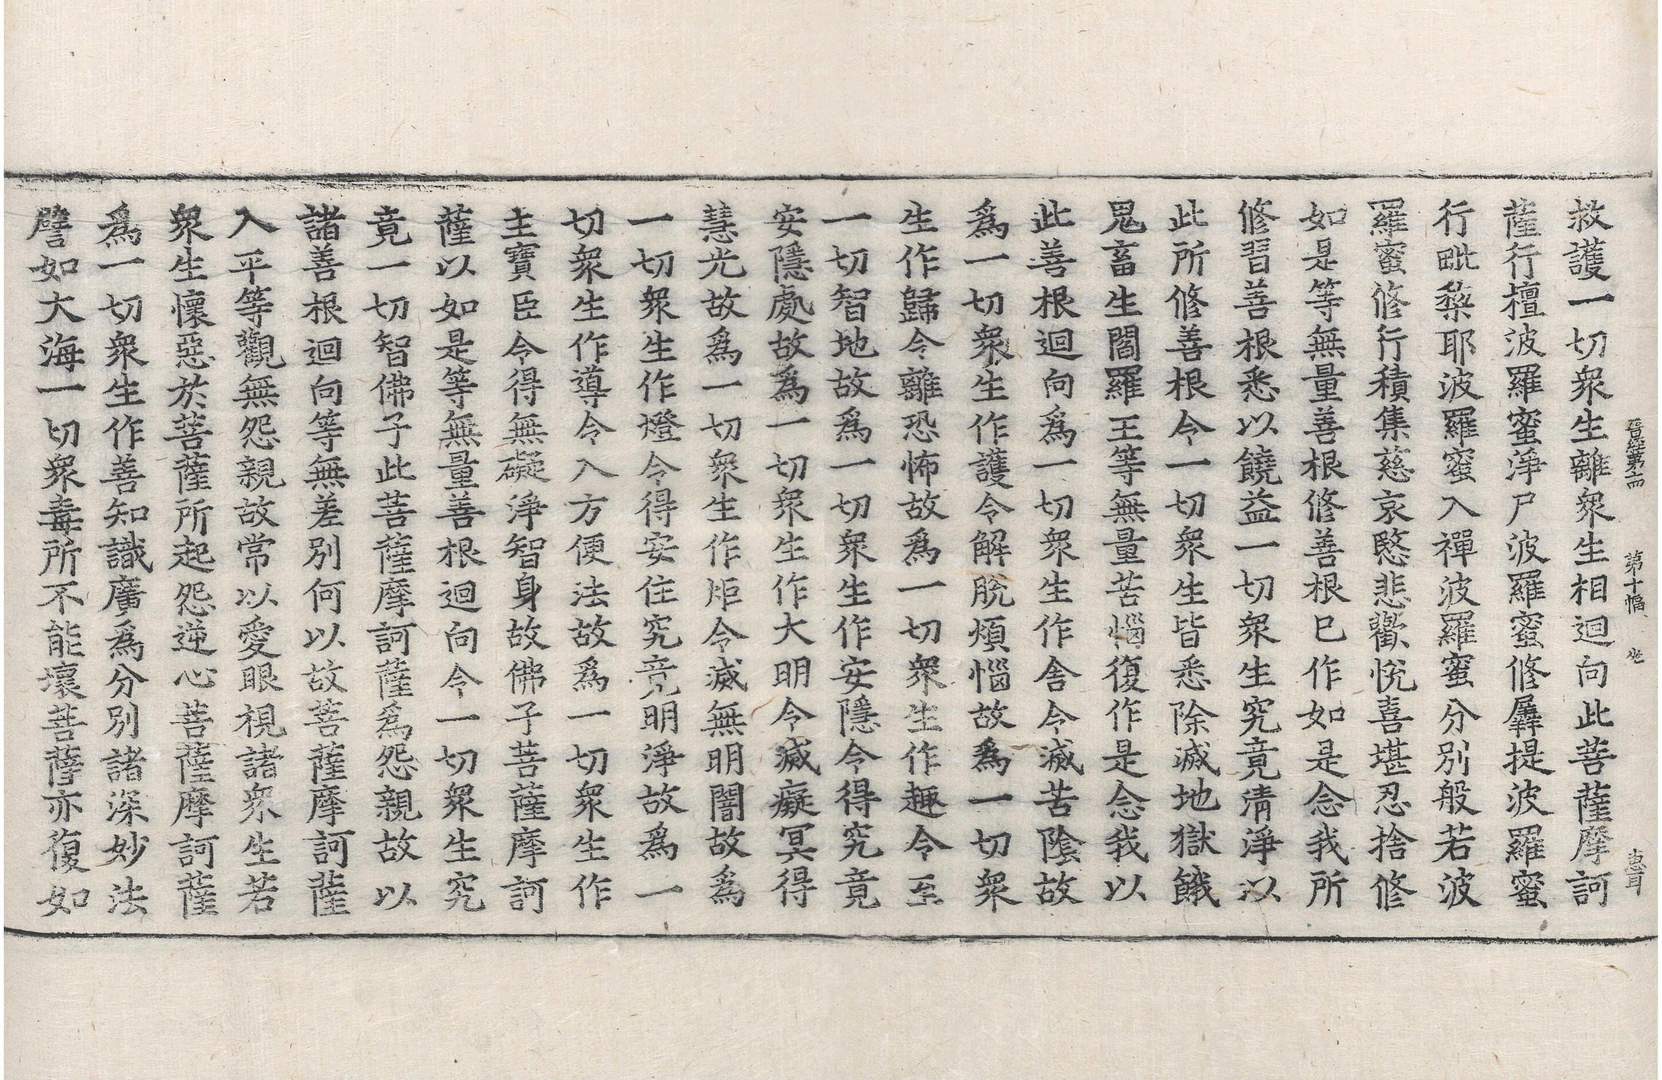 晋経第十四 第十幅
救護一切衆生離衆生相迴向此菩薩摩訶
薩行檀波羅蜜淨尸波羅蜜修羼提波羅蜜
行毗棃耶波羅蜜入禪波羅蜜分別般若波
羅蜜修行積集慈哀愍悲歡悅喜堪忍捨修
如是等無量善根修善根已作如是念我所
修習善根悉以饒益一切衆生究竟清淨以
此所修善根令一切衆生皆悉除滅地獄餓
鬼畜生閻羅王等無量苦惱復作是念我以
此善根迴向爲一切衆生作舍令滅苦陰故
爲一切衆生作護令解脫煩惱故爲一切衆
生作歸令離恐怖故爲一切衆生作趣令至
一切智地故爲一切衆生作安隱令得究竟
安隱處故爲一切衆生作大明令滅癡冥得
慧光故爲一切衆生作炬令滅無明闇故爲
一切衆生作燈令得安住究竟明淨故爲一
切衆生作導令入方便法故爲一切衆生作
主寶臣令得無礙淨智身故佛子菩薩摩訶
薩以如是等無量善根迴向令一切衆生究
竟一切智佛子此菩薩摩訶薩爲怨親故以
諸善根迴向等無差別何以故菩薩摩訶薩
入平等觀無怨親故常以愛眼視諸衆生若
衆生懷惡於菩薩所起怨逆心菩薩摩訶薩
爲一切衆生作善知識廣爲分別諸深妙法
譬如大海一切衆毒所不能壞菩薩亦復如